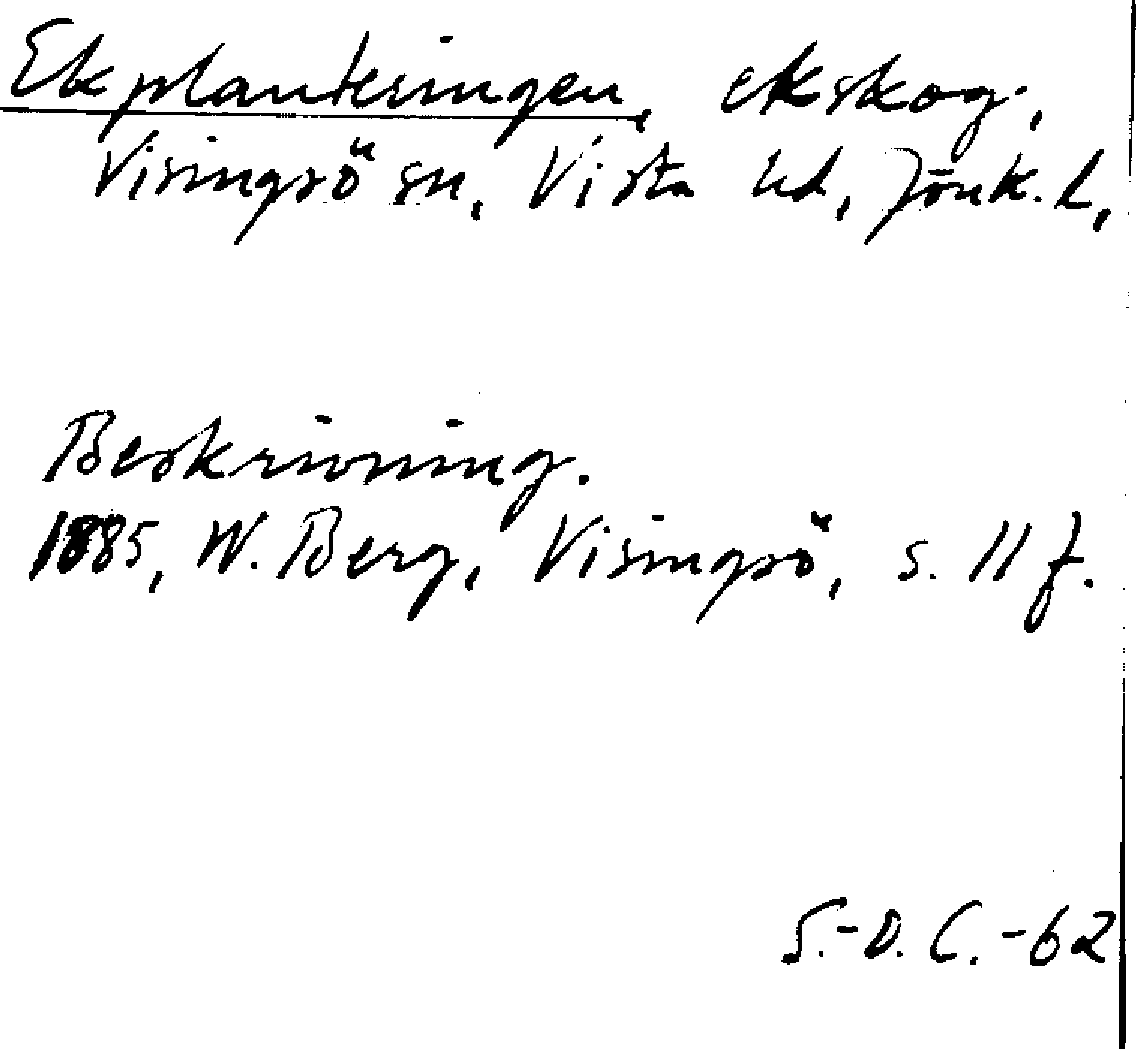 Ekplanteringen, ekskog,
Visingsö sn, Vista hd, Jönk. l,
Beskrivning.
1885, W. Berg, Visingsö, s. 11 f.
S.-O. C. -62